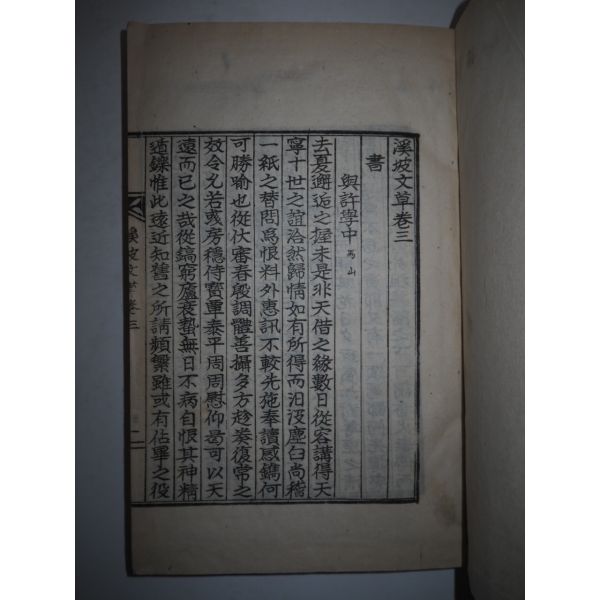 溪坡文草卷三
書
與許學中 馬山
去夏邂逅之握未是非天借之緣數日從容講得天
寧十世之誼洽然歸情如有所得而汨沒塵臼尚稽
一紙之替問爲恨料外惠訊不較先施奉讀感鐫何
可勝喩也從伏審春殷調體善攝多方趁奏復常之
效令允若彧房穩侍寶覃泰平周周慰仰曷可以天
遠而已之哉從鎬窮廬衰蟄無日不病自恨其神精
逎鑠惟此遠近知舊之所請頻繁雖或有佔畢之役
溪坡文草卷三
一